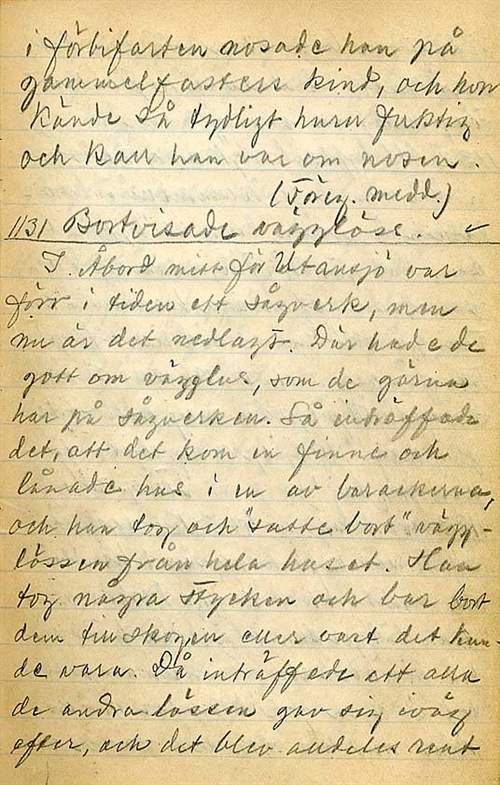 i förbifarten nosade han på
gammelfasters kind, och hon
kände så tydligt huru fuktig
och kall han var om nosen.
(Föreg. medd.)
1131 Bortvisade vägglöss.
I Åbord mitt för Utansjö var
förr i tiden ett sågverk, men
nu är det nedlagt. Där hade de
gott om vägglus, som de gärna
har på sågverken. Så inträffade
det, att det kom en finne och
lånade hus i en av barackerna,
och han tog och "satte bort" vägg-
lössen från hela huset. Han
tog några stycken och bar bort
dem till skogen eller vart det kun-
de vara. Då inträffade att alla
de andra lössen gav sig iväg
efter, och det blev alldeles rent